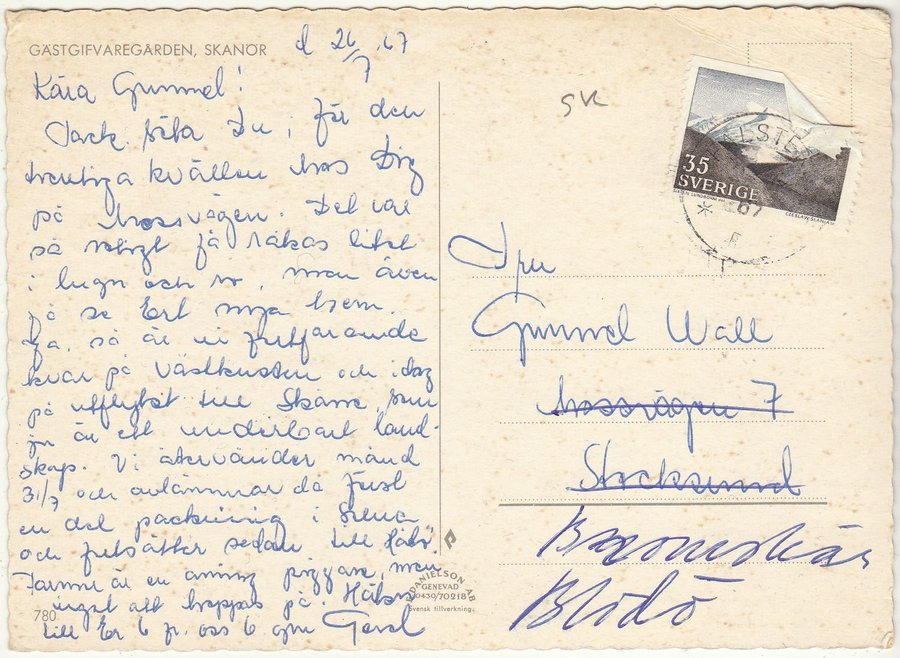 GÄSTGIFVAREGÅRDEN, SKANÖR
d 26/7 .67
Kära Gunnel!
Tack söta Du, för den
trevliga kvällen hos Dig
på Mossvägen. Det var
så roligt få råkas litet
i lugn och ro, men även
få se Ert nya hem.
Ja, så är vi fortfarande
kvar på Västkusten och idag
på utflykt till Skåne, som
ju är ett underbart land-
skap. Vi återvänder månd
31/7 och avlämnar då först
en del packning i
och fortsätter sedan till
är en aning piggare, men
inget att hoppas på. Hälsn
till Er 6 fr. oss 6 gm
780
SK
35
SVERIGE
CZESLAW SLANIA
67
Fru
Gunnel Wall
Mossvägen 7
Stocksund
Blidö
DANIELSON AB
GENEVAD
0430/70218
Svensk tillverkning